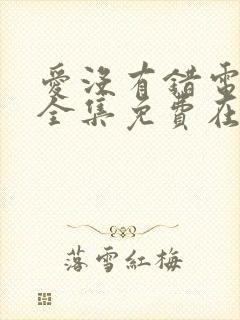 愛沒有錯電
全集免費在
落雪紅梅